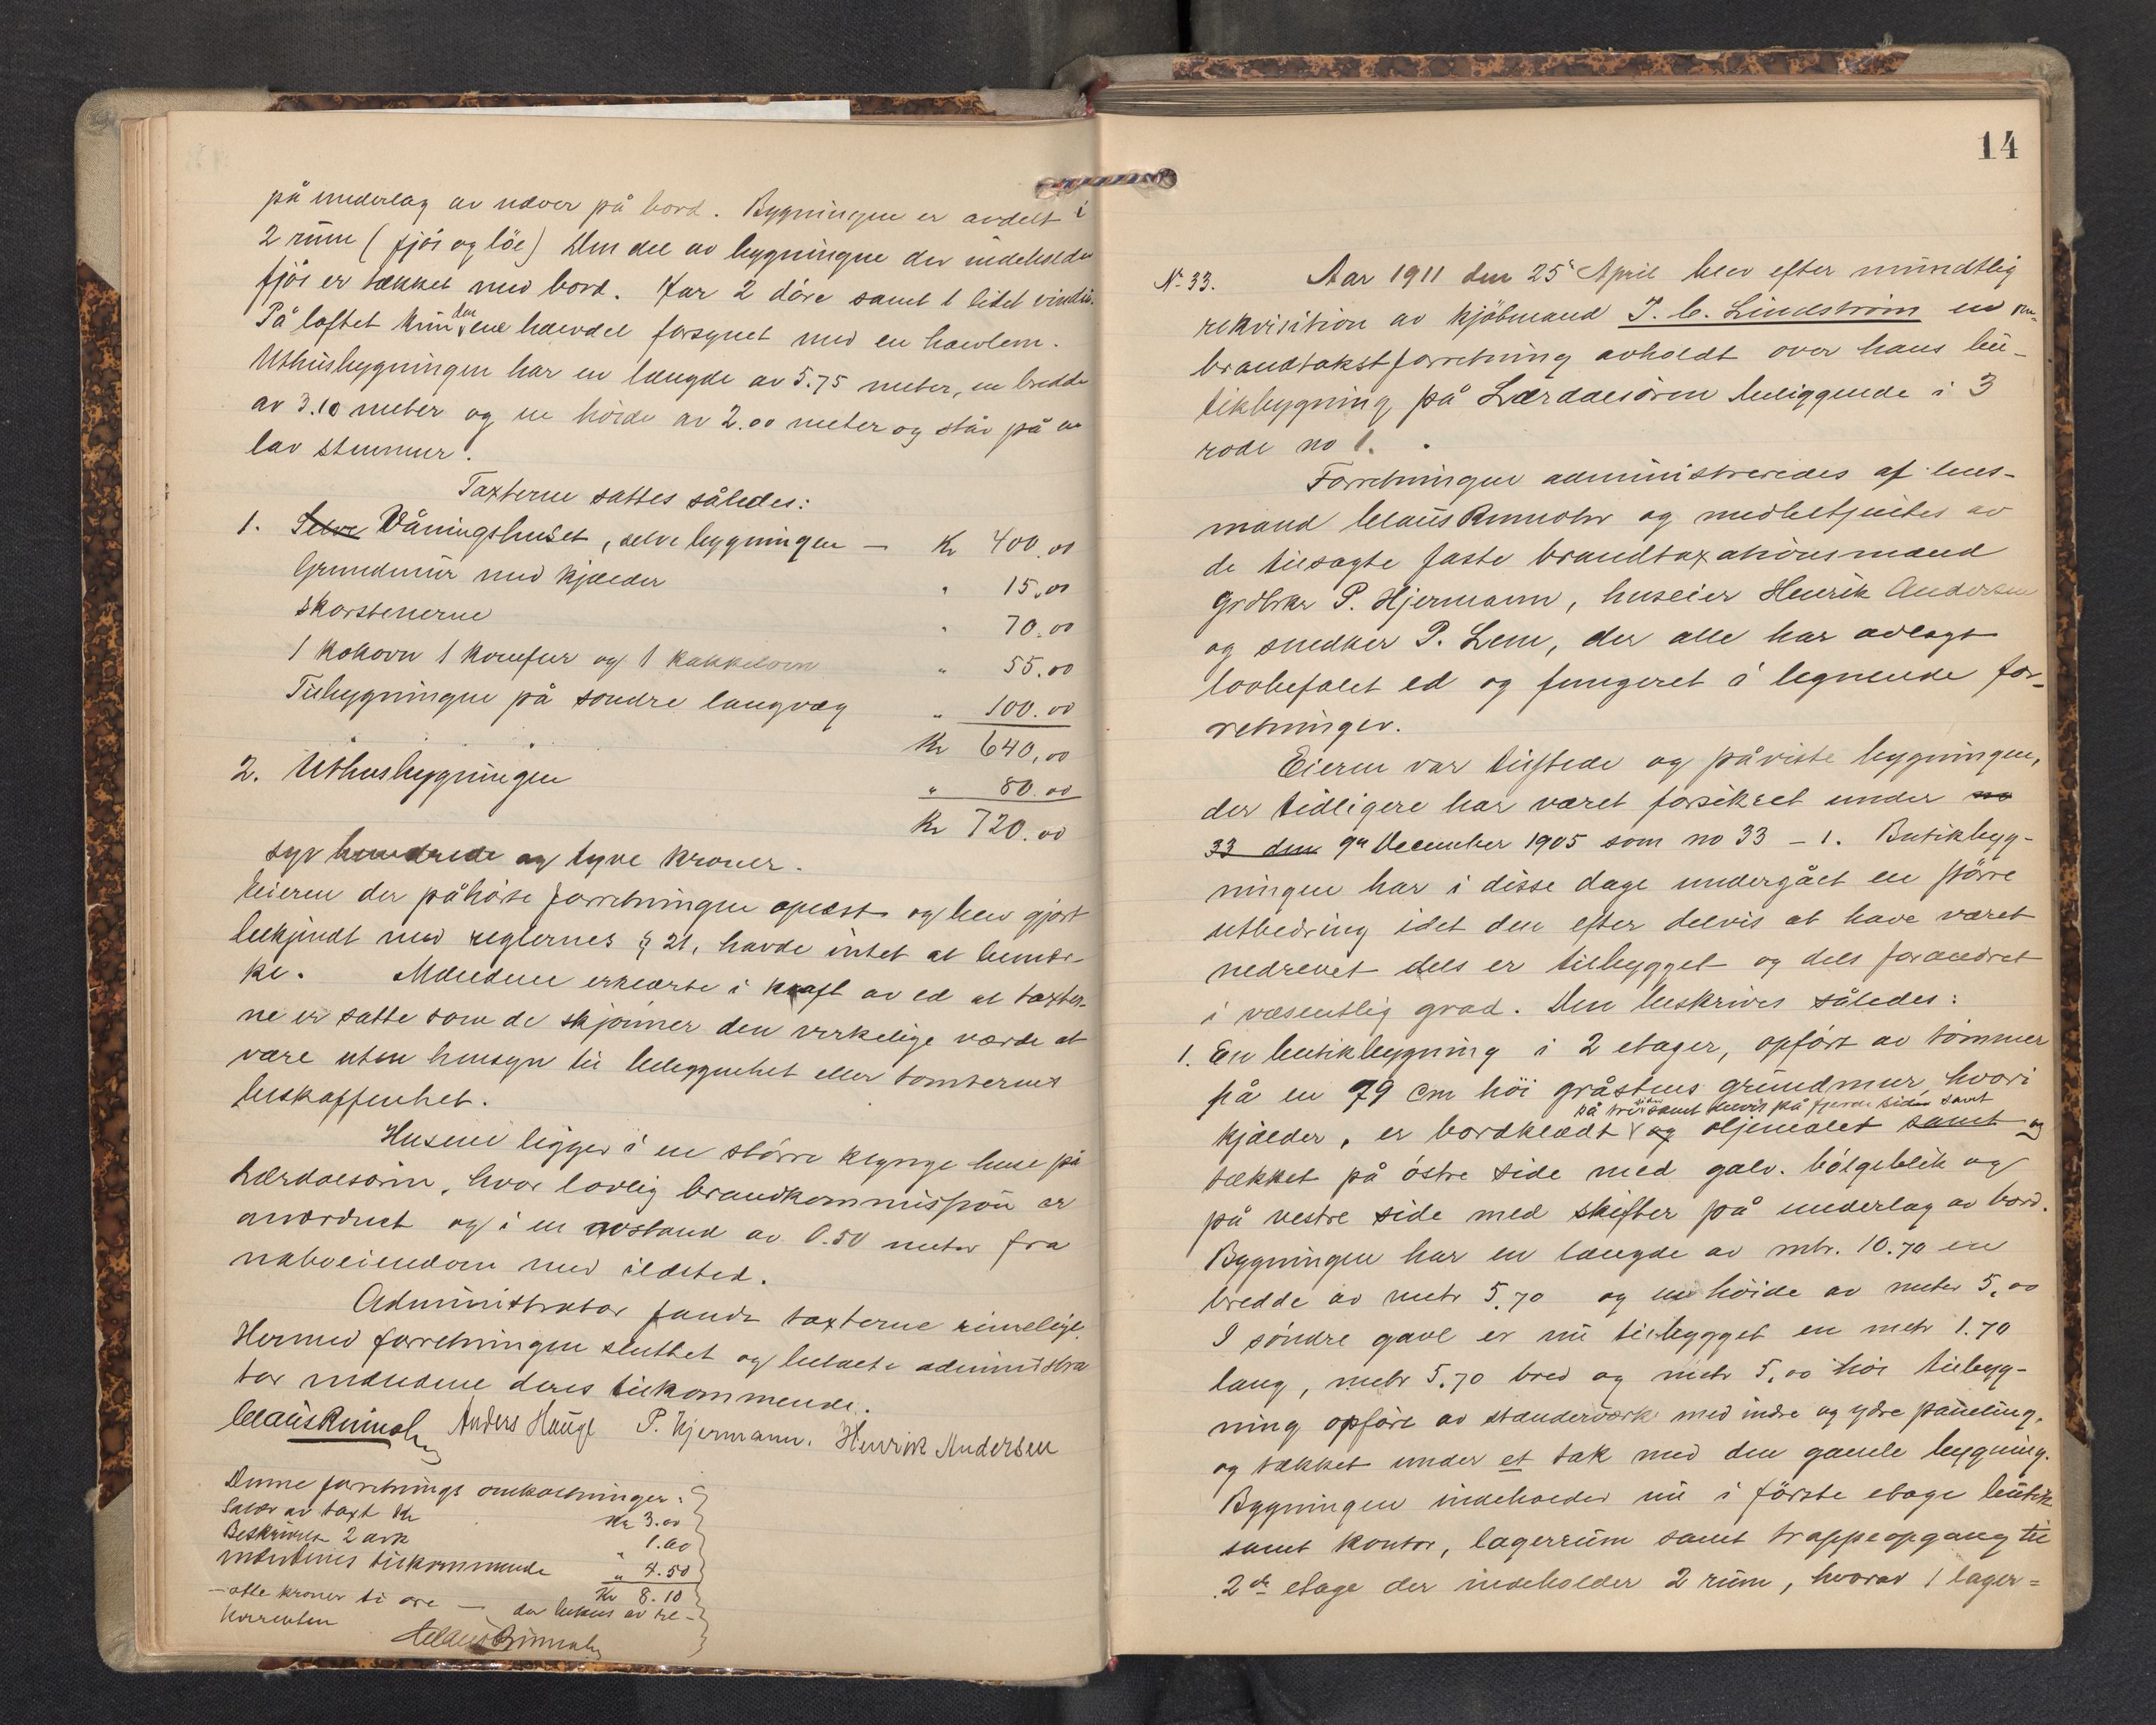 på underlag av næver på bord. Bygningen er avdelt i
2 rum (fjøs og löe) Den del av bygningen der indeholder
fjøs er tækket med bord. Har 2 döre samt 1 litet vindu.
På loftet kun den ene halvdel forsynet med en
Uthusbygningen har en længde av 5.75 meter, en bredde
av 3.10 meter og en höide av 2.00 meter og står på en
lav stenmur.
Taxterne sattes således:
1. Selve Våningshuset, selve bygningen — Kr 400.00
Grundmur med kjælder " 15.00
Skorstenerne " 70.00
1 kokovn 1 komfur og 1 kakkelovn " 55.00
Tilbygningen på söndre langvæg " 100.00
Kr 640,00
2. Uthusbygningen " 80.00
Kr 720.00
syv hundrede og tyve kroner.
Eieren der påhörte forretningen oplæst og blev gjort
bekjendt med reglernes § 21, havde intet at bemær-
ke. Mændene erklærte i kraft av ed at taxter-
ne er satte som de skjönner den virkelige værde at
være uten hensyn til beliggenhet eller tomternes
beskaffenhet.
Husene ligger i en större klynge huse på
Lærdalsören, hvor lovlig brandkommission er
anordnet og i en avstand av 0.50 meter fra
naboeiendom med ildsted.
Administrator fandt taxterne rimelige.
Hermed forretningen sluttet og betalte administra
tor mændene deres tilkommende.
Claus Rumohr Anders Hauge P. Hjermann. Henrik Andersen
Denne forretnings omkostninger:
Salær av taxt Kr Kr 3.00
Beskrivelse 2 ark " 1.60
Mændenes tilkommende " 4.50
Kr 8.10
— otte kroner ti öre — der betales av re-
kvirenten
Claus Rumohr
14
No 33. Aar 1911 den 25 April blev efter mundtlig
rekvisition av kjöbmand J. C. Lindström en om-
brandtakstforretning avholdt over hans bu-
tikbygning på Lærdalsören beliggende i 3
rode no 1.
Forretningen administreredes af lens-
mand Claus Rumohr og medbetjentes av
de tilsagte faste brandtaxationsmænd
grdbkr P. Hjermann, huseier Henrik Andersen
og snedker P. Lem, der alle har avlagt
lovbefalet ed og fungeret i lignende for-
retninger.
Eieren var tilstede og påviste bygningen,
der tidligere har været forsikret under no
33 den 9de December 1905 som no 33 - 1. Butikbyg-
ningen har i disse dage undergået en större
utbedring idet den efter delvis at have været
nedrevet dels er tilbygget og dels forandret
i væsentlig grad. Den beskrives således:
1. En butikbygning i 2 etager, opfört av tömmer
på en 79 cm höi gråstens grundmur, hvori
på tre sider samt delvis på fjerde side samt
kjælder, er bordklædt og oljemalet samt og
tækket på östre side med galv. bölgeblik og
på vestre side med skifter på underlag av bord.
Bygningen har en længde av mtr. 10.70 en
bredde av metr 5.70 og en höide av meter 5.00
I söndre gavl er nu tilbygget en metr 1.70
lang, metr 5.70 bred og metr 5.00 höi tilbyg-
ning opfört av stenderværk med indre og ydre paneling.
og tækket under et tak med den gamle bygning.
Bygningen indeholder nu i förste etage butik
samt kontor, lagerrum samt trappeopgang til
2de etage der indeholder 2 rum, hvorav 1 lager=